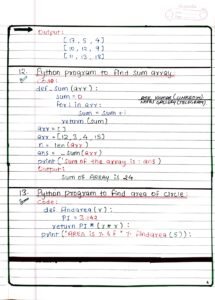 Output:
[13, 5, 9]
[10, 12, 9]
[11, 13, 18]
12. Python program to find sum array.
code:
def _sum(arr):
sum = 0
for i in arr:
sum = sum + i
return (sum)
arr = [ ]
arr = [12, 3, 4, 15]
n = len(arr)
ans = _sum(arr)
print ('sum of the array is: ans)
Output:
sum of ARRAY is 34
13. Python program to find area of circle.
code:
def findarea(r):
PI = 3.142
return PI * (r * r);
print ("Area is %.6f" % findarea(5));